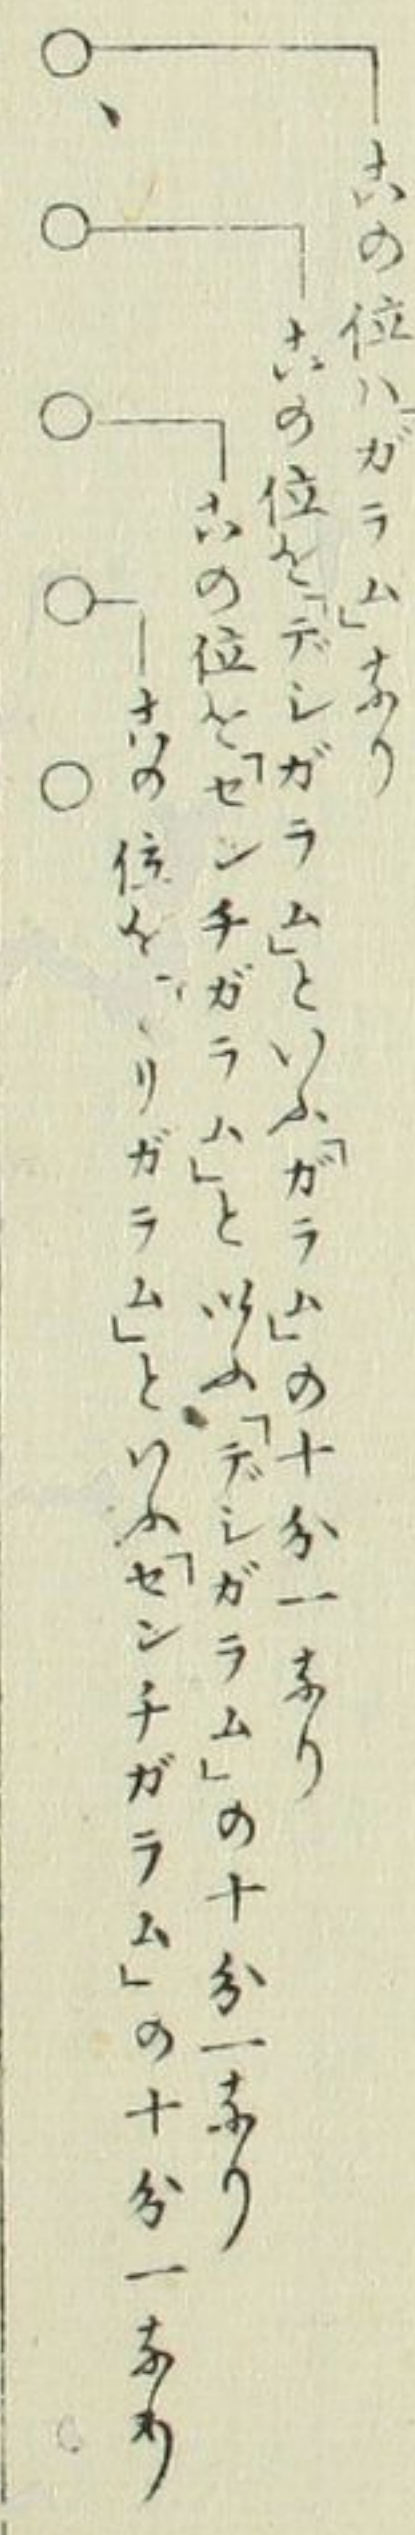 この位ハ「ガラム」なり
この位を「デシガラム」といふ「ガラム」の十分一なり
この位を「センチガラム」と以ふ「デシガラム」の十分一なり
この位を「ミリガラム」といふ「センチガラム」の十分一なり